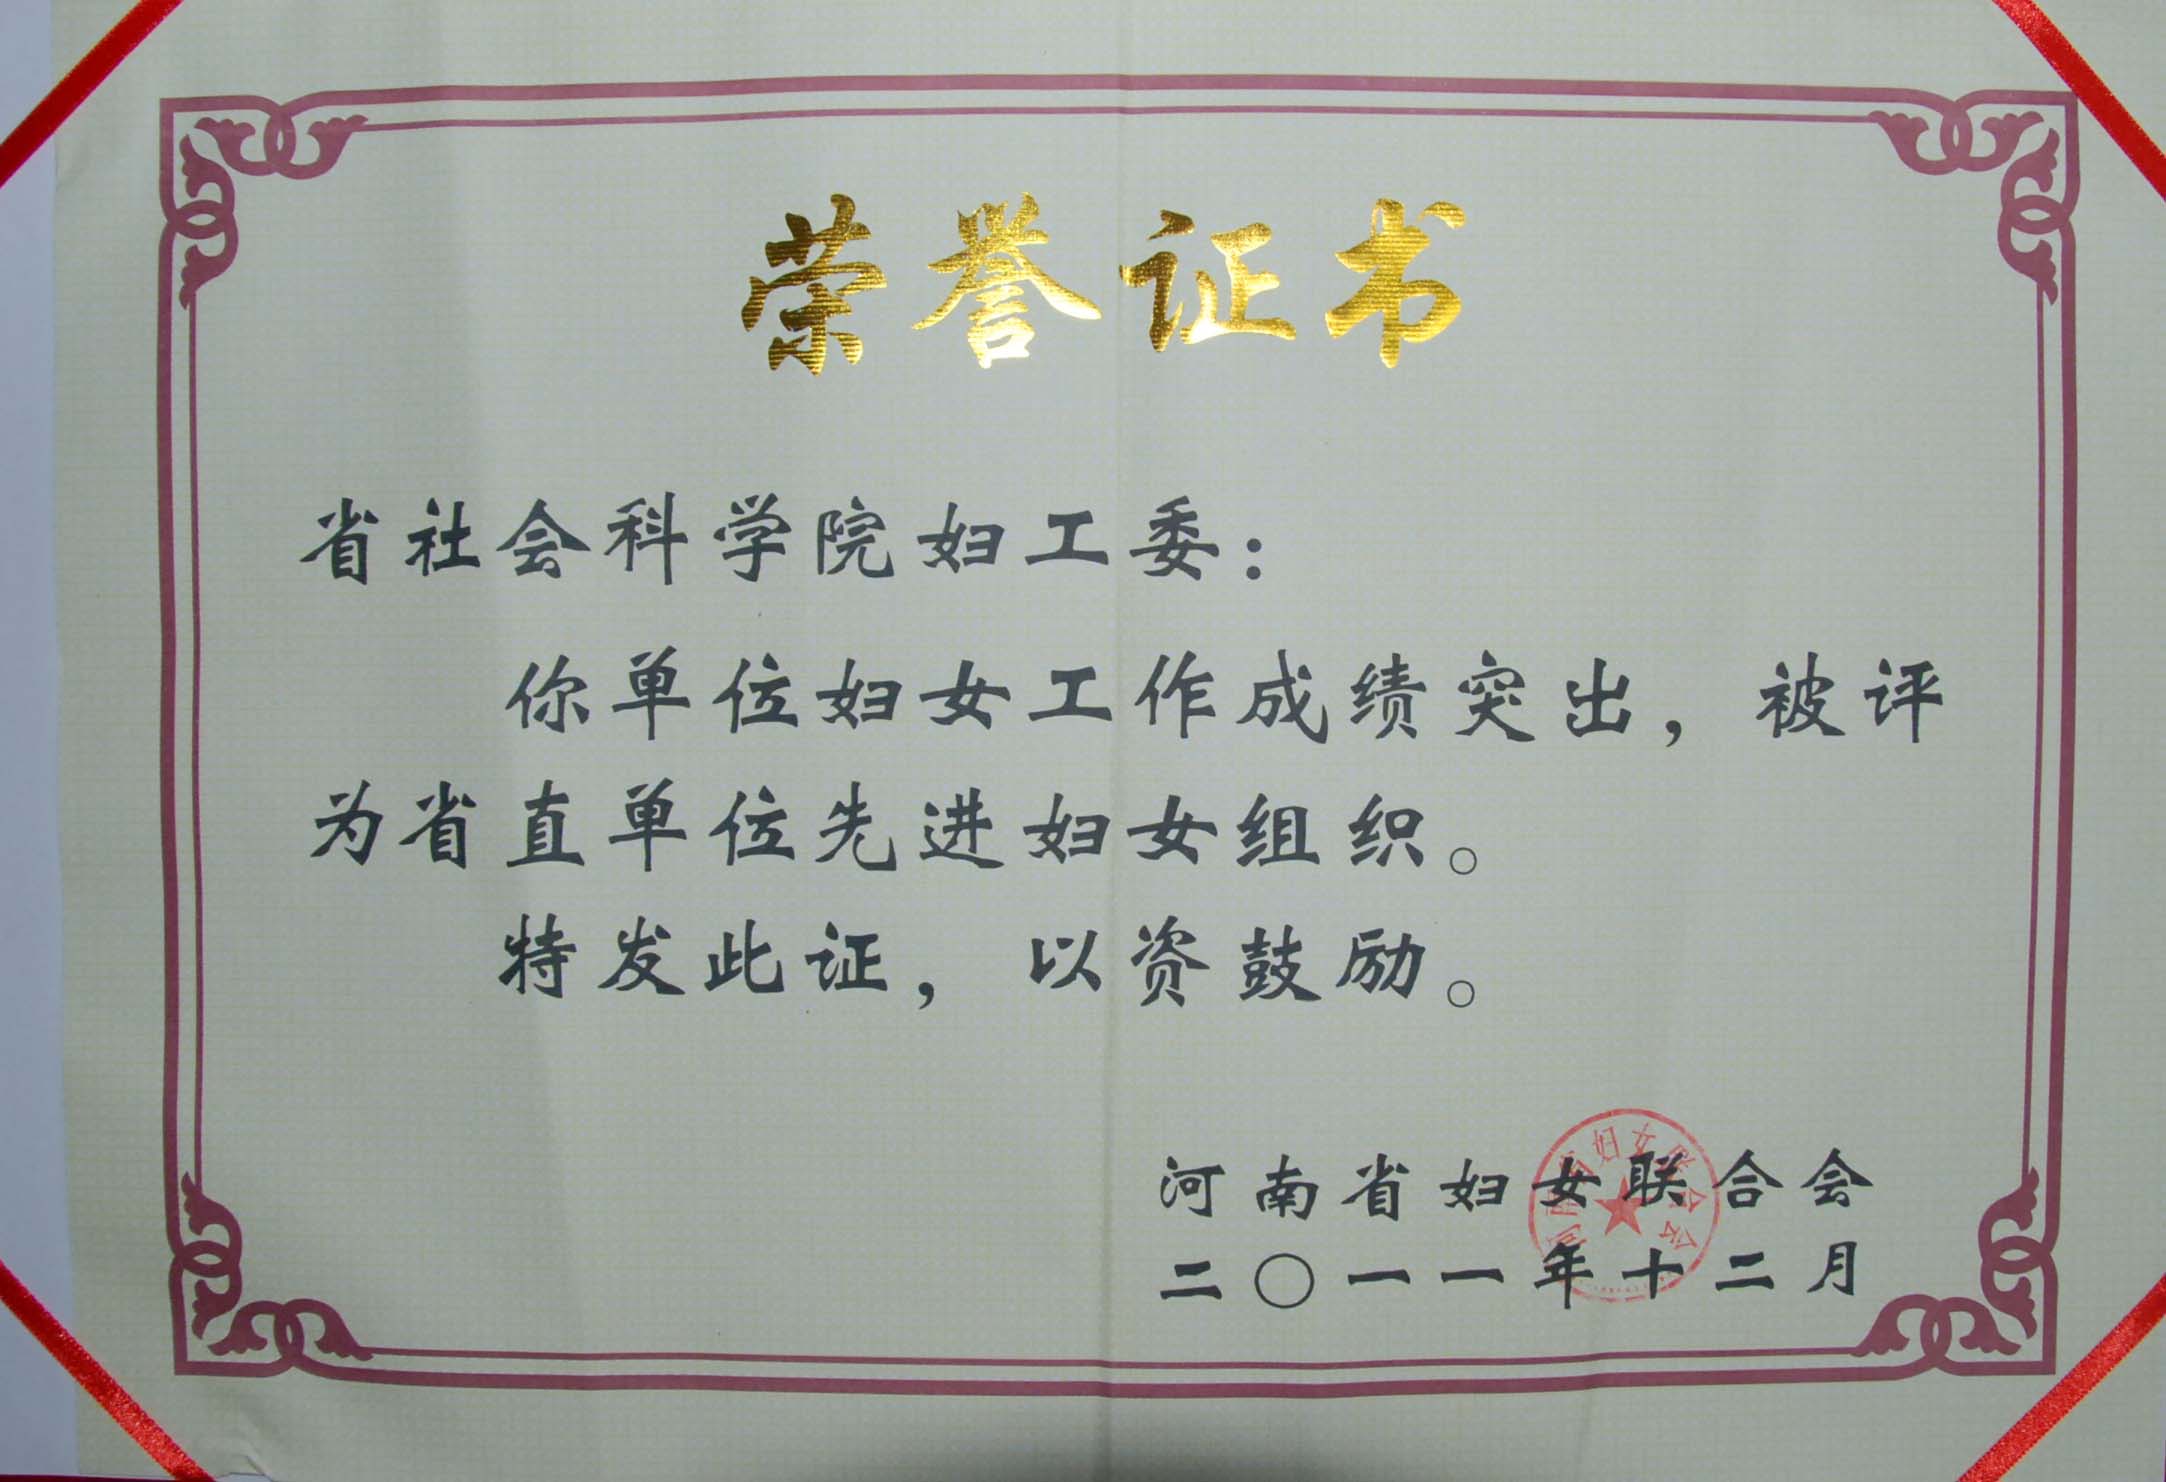 荣誉证书
省社会科学院妇工委：
你单位妇女工作成绩突出，被评
为省直单位先进妇女组织。
特发此证，以资鼓励。
河南省妇女联合会
二〇一一年十二月
河南省妇女联合会